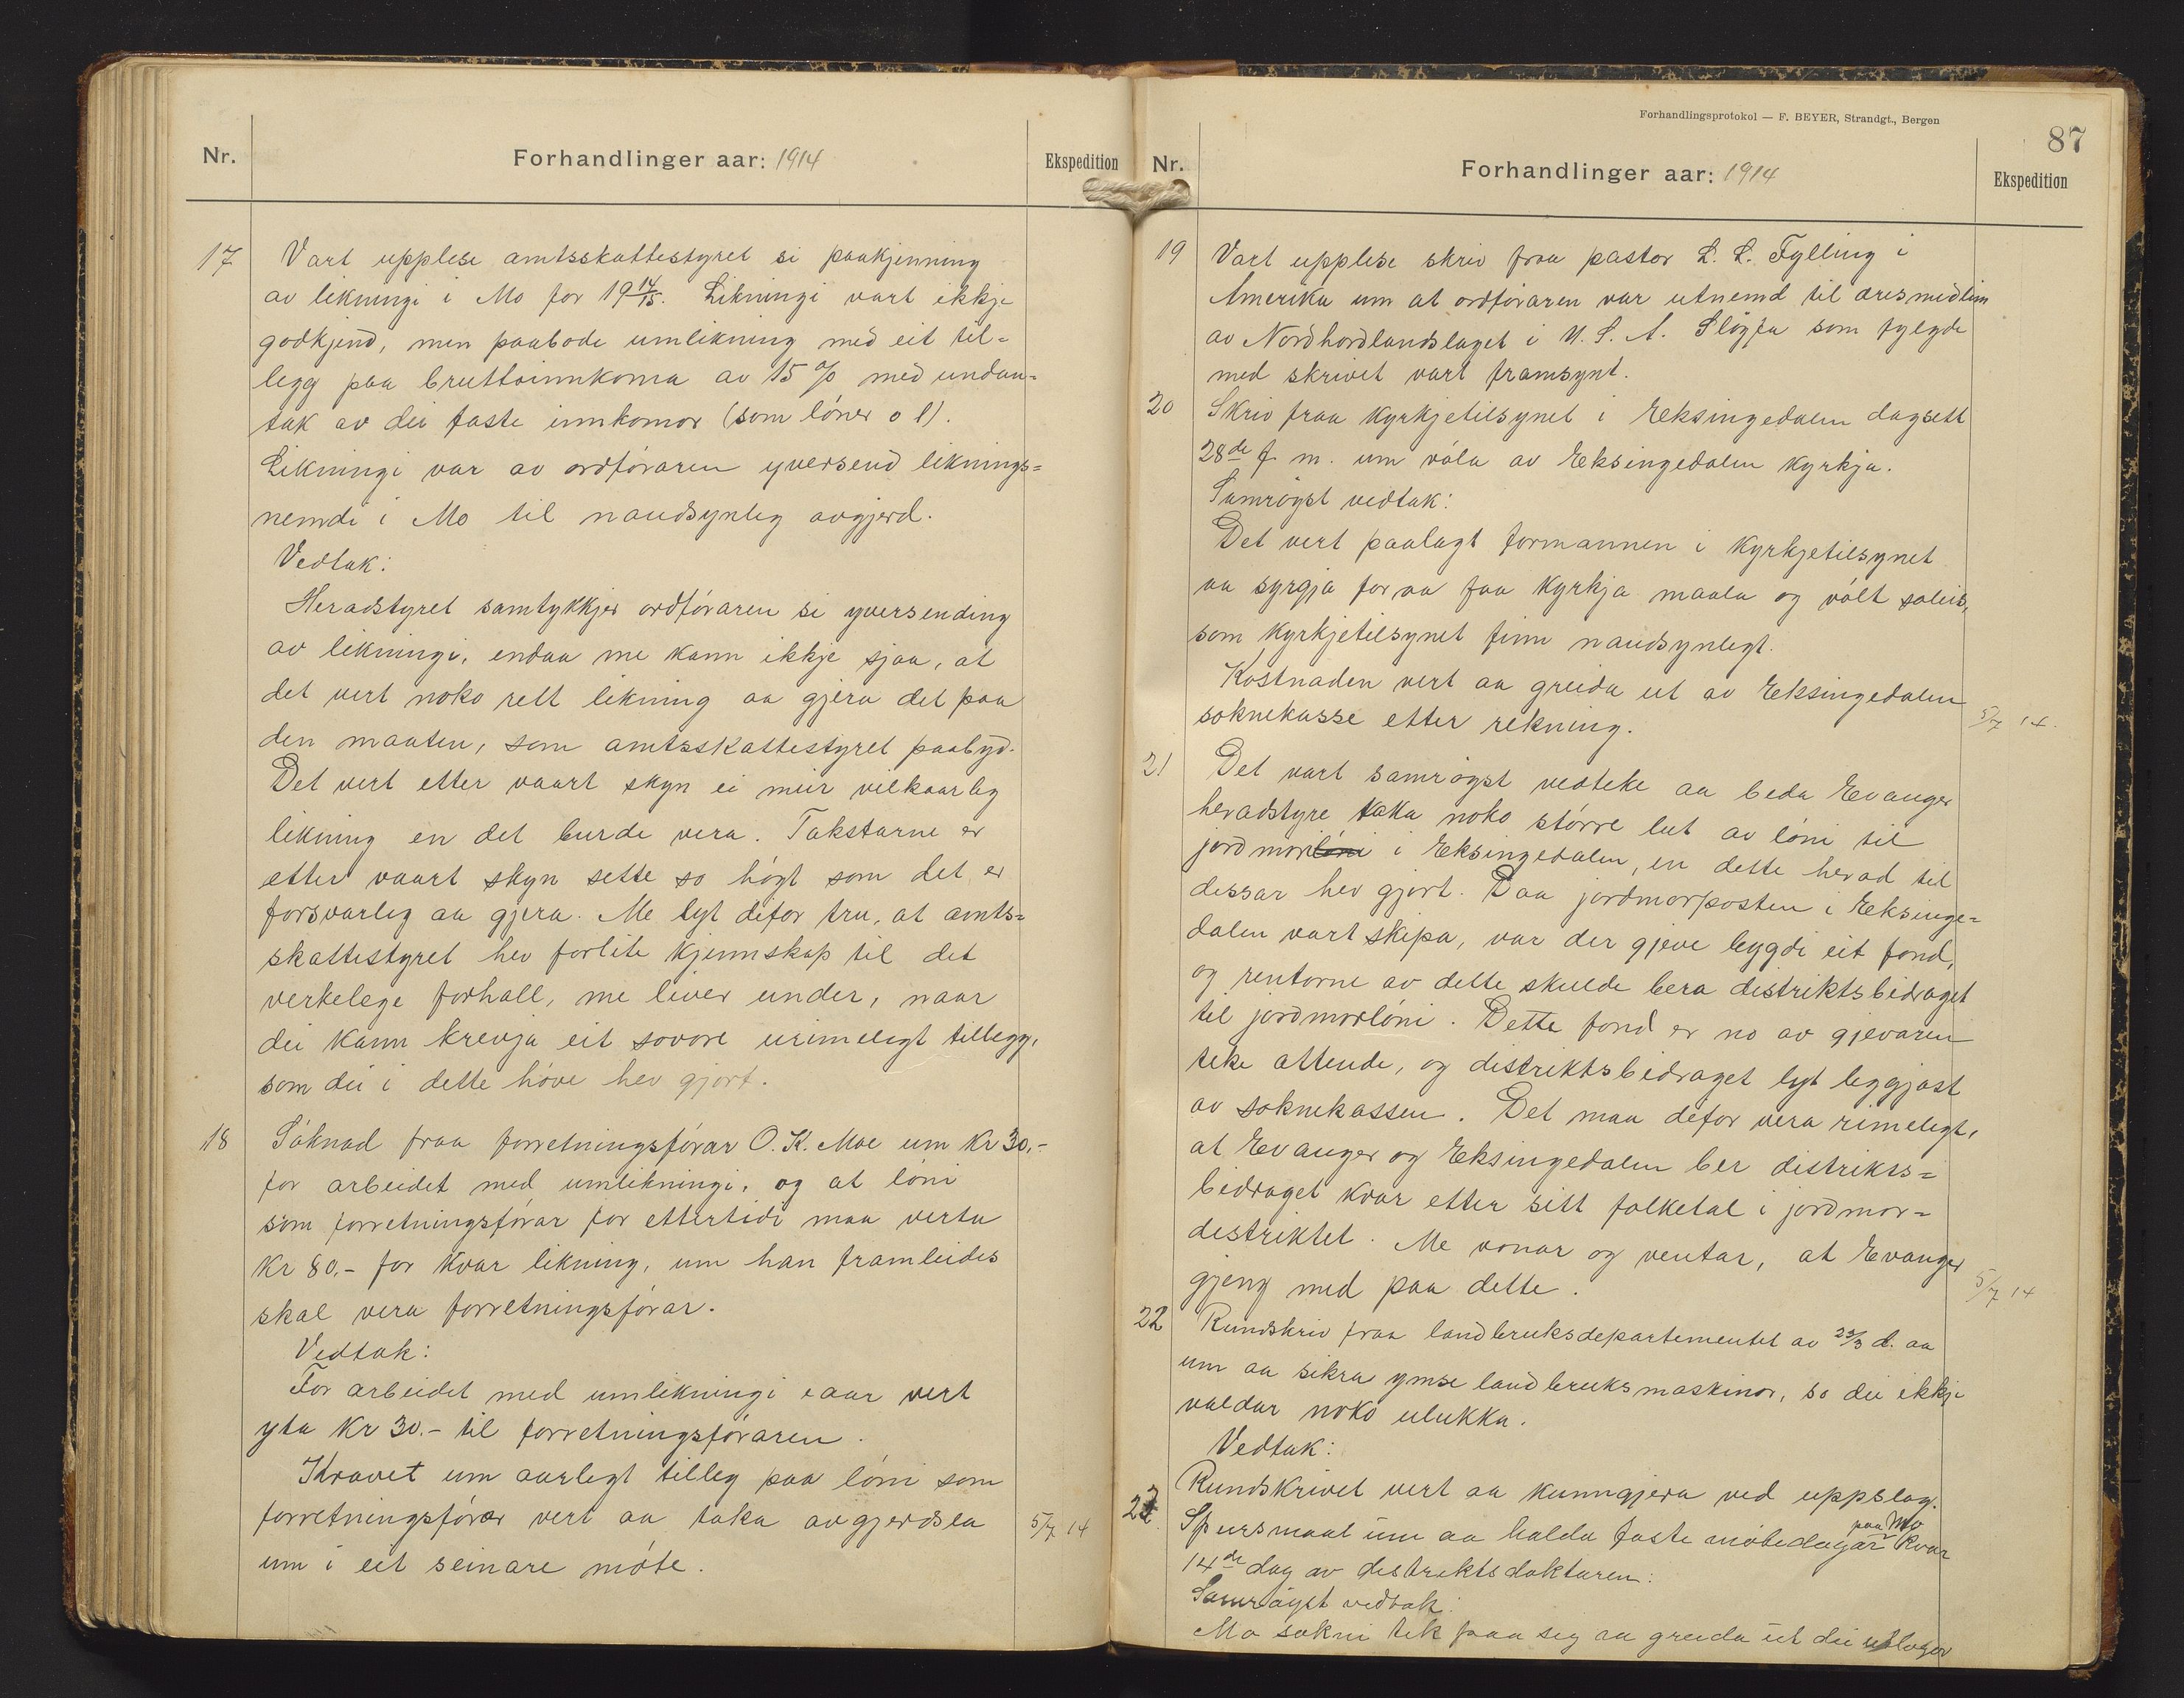 Nr.
Forhandlinger aar: 1914
Ekspedition
17 Vart upplese amtsskattestyret si paakjenning
av likningi i Mo for 19 14/15. Likningi vart ikkje
godkjend, men paabode umlikning med eit til=
legg paa bruttoinnkoma av 15 % med undan=
tak av dei faste innkomor (som lóner o l).
Likningi var av ordfóraren yversend liknings=
nemdi i Mo til naudsynleg avgjerd.
Vedtak:
Heradstyret samtykkjer ordfóraren si yversending
av likningi, endaa me kann ikkje sjaa, at
det vert noko rett likning aa gjera det paa
den maaten, som amtsskattestyret paabyd.
Det vert etter vaart skyn ei meir vilkaarleg
likning en det burde vera. Takstarne er
etter vaart skyn sette so hógt som det er
forsvarleg aa gjera. Me lyt difor tru, at amts=
skattestyret hev forlite kjennskap til det
verkelege forhall, me liver under, naar
dei kann krevja eit sovore urimelegt tillegg,
som dei i dette hóve hev gjort.
18 Sóknad fraa forretningsfórar O. K. Moe um Kr 30.-
for arbeidet med umlikningi, og at lóni
som forretningsfórar for ettertidi maa verta
Kr 80.- for kvar likning, um han framleides
skal vera forretningsfórar.
Vedtak:
For arbeidet med umlikningi i aar vert
yta Kr 30.- til forretningsfóraren.
Kravet um aarlegt tilleg paa lóni som
forretningsfórar vert aa taka avgjerdsla 5/7 14
um i eit seinare móte.
Forhandlingsprotokol — F. BEYER, Strandgt., Bergen
87
Nr.
Forhandlinger aar: 1914
Ekspedition
19 Vart upplese skriv fraa pastor L. L. Fylling i
Amerika um at ordfóraren var utnemd til æresmedlim
av Nordhordlandslaget i U. S. A. Slógfa som fylgde
med skrivet vart framsynt.
20 Skriv fraa kyrkjetilsynet i Eksingedalen dagsett
28de f m. um vóla av Eksingedalen kyrkja.
Samrøyst vedtak:
Det vert paalagt formannen i kyrkjetilsynet
aa syrgja for aa faa kyrkja maala og vólt soleis,
som kyrkjetilsynet finn naudsynlegt.
Kostnaden vert aa greida ut av Eksingedalen
soknekasse etter rekning. 5/7 14.
21 Det vart samróyst vedteke aa beda Evanger
heradstyre taka noko stórre lut av lóni til
jordmorlóni i Eksingedalen, en dette herad til
dessar hev gjort. Daa jordmorposten i Eksinge=
dalen vart skipa, var der gjeve bygdi eit fond,
og rentorne av dette skulde bera distriktsbidraget
til jordmorlóni. Dette fond er no av gjevaren
teke attende, og distriktsbidraget lyt leggjast
av soknekassen. Det maa difor vera rimelegt,
at Evanger og Eksingedalen ber distrikts=
bidraget kvar etter sitt folketal i jordmor=
distriktet. Me vonar og ventar, at Evanger
gjeng med paa dette. 5/7 14
22 Rundskriv fraa landbruksdepartementet av 23/3 d. aa
um aa sikra ymse landbruksmaskinor, so dei ikkje
valdar noko ulukka.
Vedtak:
Rundskrivet vert aa kunngjera ved uppslag.
23. Spursmaal um aa halda faste mótedagar paa Mo kvar
14de dag av distriktsdoktaren:
Samróyst vedtak:
Mo sokni tek paa seg aa greida ut dei utlogor